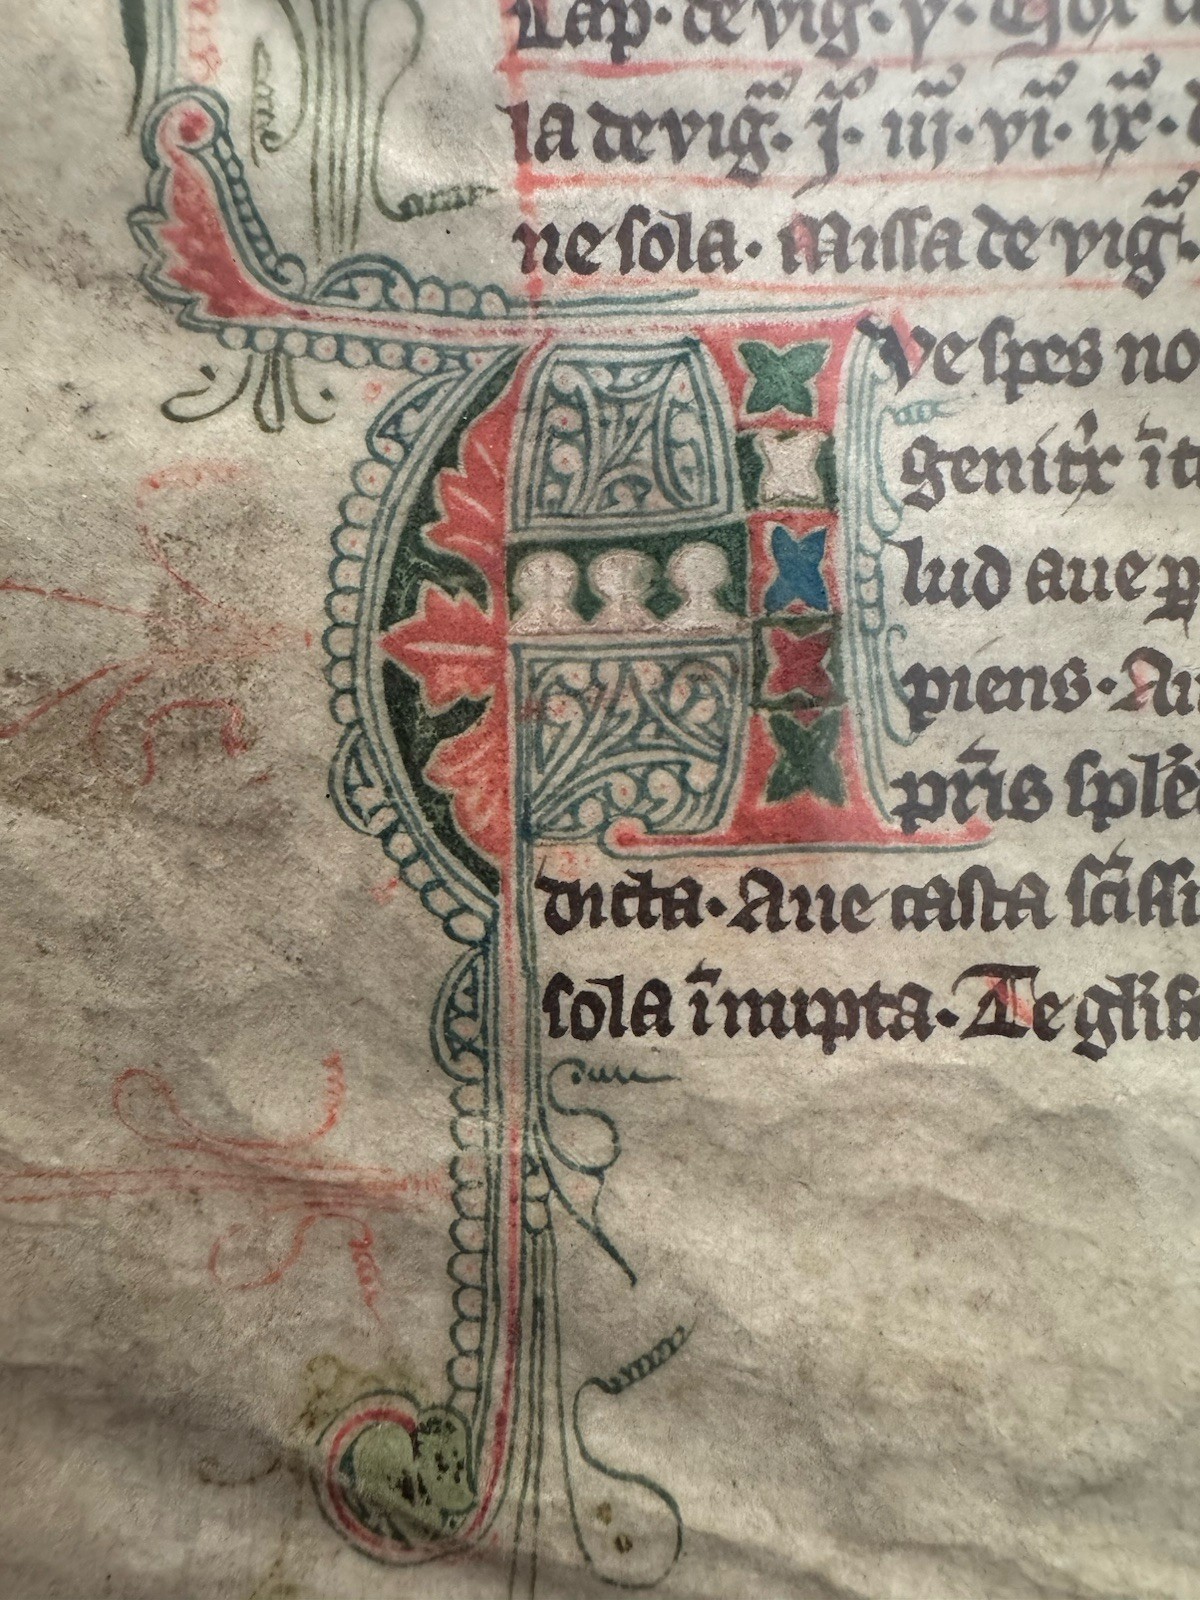 Cap· de vig̃· v· Hor
la de vig̃· j̃· iij̃· vĩ· ix̃·
ne sola· Missa de vig̃·
AVe spes no
genitr̃x ĩt
lud aue p
piens· Au
pr̃is splẽ
dicta· Aue casta sc̃issi
sola ĩnupta· Te glis